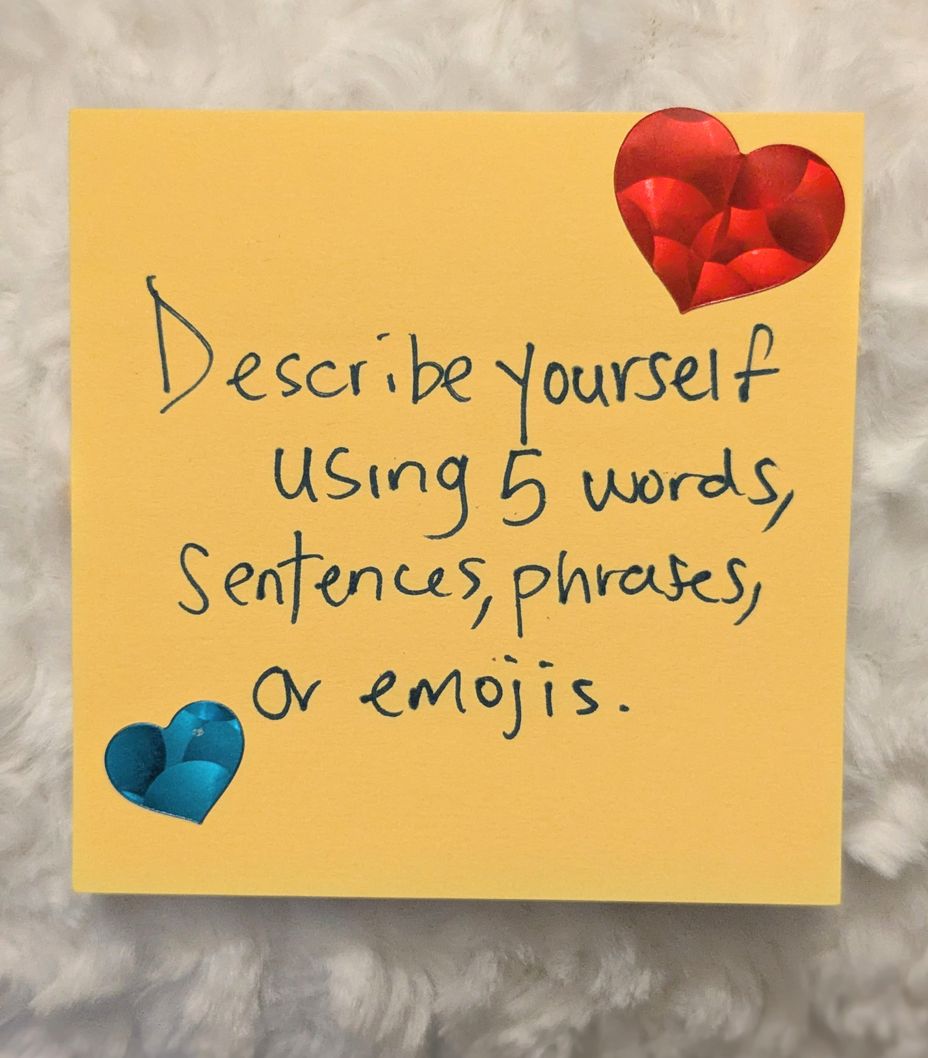 Describe yourself
using 5 words,
Sentences, phrases,
or emojis.